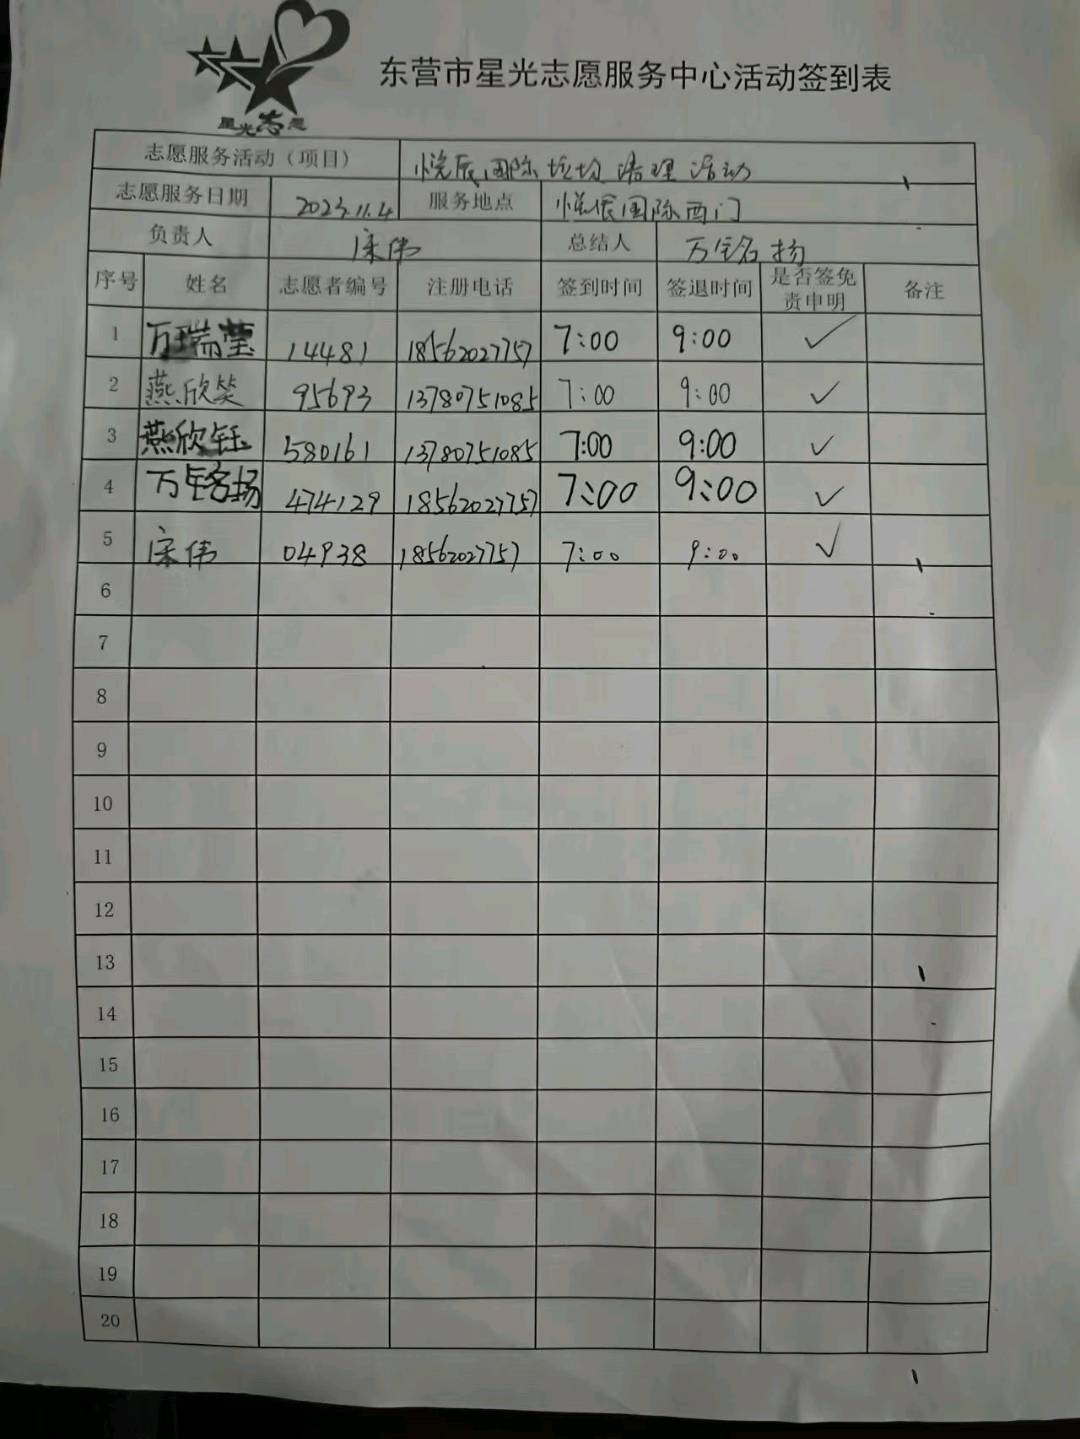 星光志愿
东营市星光志愿服务中心活动签到表
志愿服务活动（项目） 悦辰国际垃圾清理活动
志愿服务日期 2023.11.4 服务地点 悦辰国际西门
负责人 宋伟 总结人 万铭扬
序号 姓名 志愿者编号 注册电话 签到时间 签退时间 是否签免责申明 备注
1 万瑞莹 14481 18562027757 7:00 9:00 ✓
2 燕欣笑 95693 13780751085 7:00 9:00 ✓
3 燕欣钰 580161 13780751085 7:00 9:00 ✓
4 万铭扬 474129 18562027757 7:00 9:00 ✓
5 宋伟 04938 18562027757 7:00 9:00 ✓
6
7
8
9
10
11
12
13
14
15
16
17
18
19
20